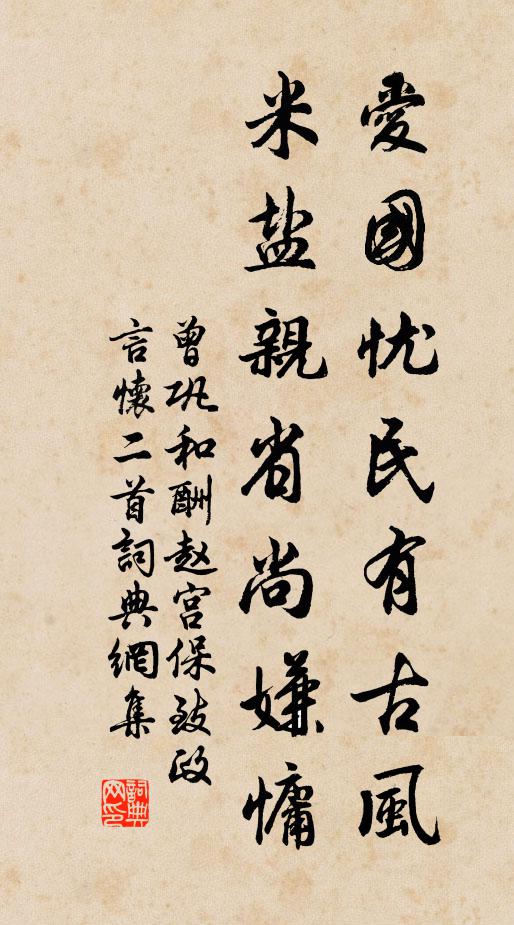 愛國忧民有古風
米盐親省尚嫌慵
曾巩和酬赵宫保致政
言懷二首詞典網集
詞典
网印